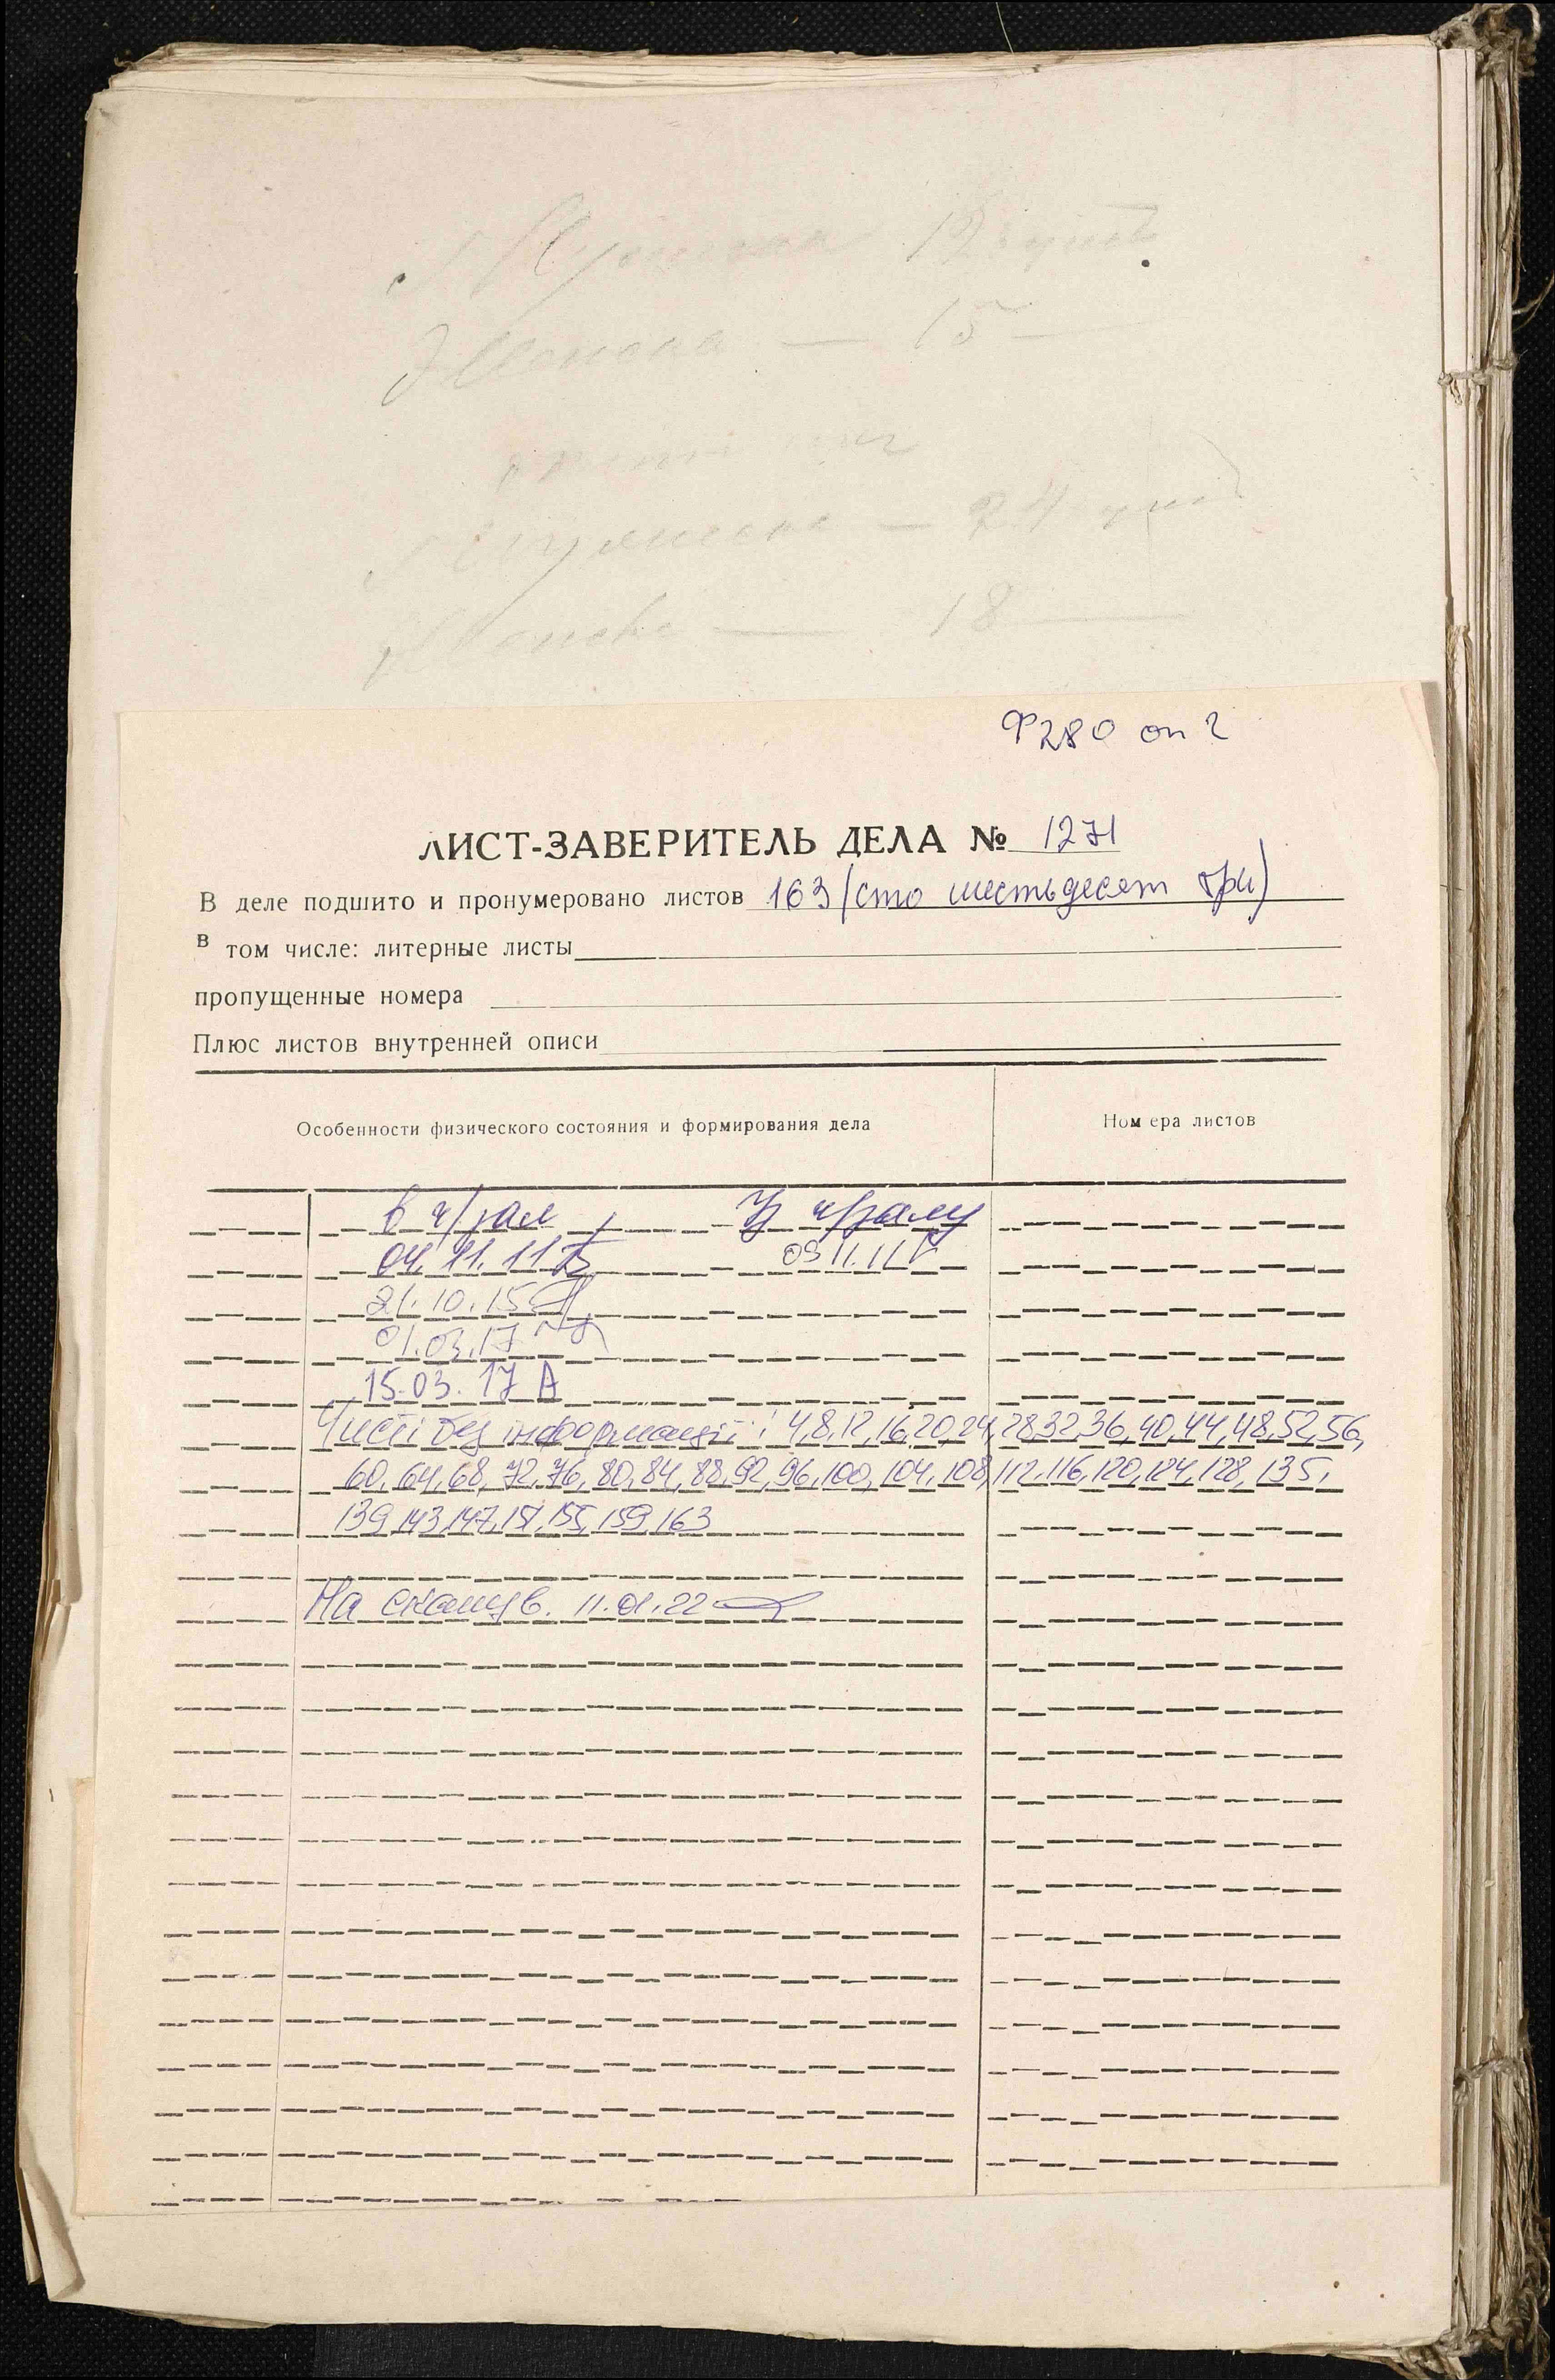 Мужска 12 душ
Женска — 15 —
Мужеска — 24 душ
Женска — 18 —
Ф280 оп 2
ЛИСТ-ЗАВЕРИТЕЛЬ ДЕЛА № 1271
В деле подшито и пронумеровано листов 163 (сто шестьдесят три)
В том числе: литерные листы
пропущенные номера
Плюс листов внутренней описи
Особенности физического состояния и формирования дела Номера листов
в ч/зал, Із ч/залу
04.11.11 09.11.11
21.10.15
01.03.17
15.03.17
Чисті без інформації: 4,8,12,16,20,24,28,32,36,40,44,48,52,56,
60,64,68,72,76,80,84,88,92,96,100,104,108,112,116,120,124,128,135,
139,143,147,151,155,159,163
На сканув. 11.01.22